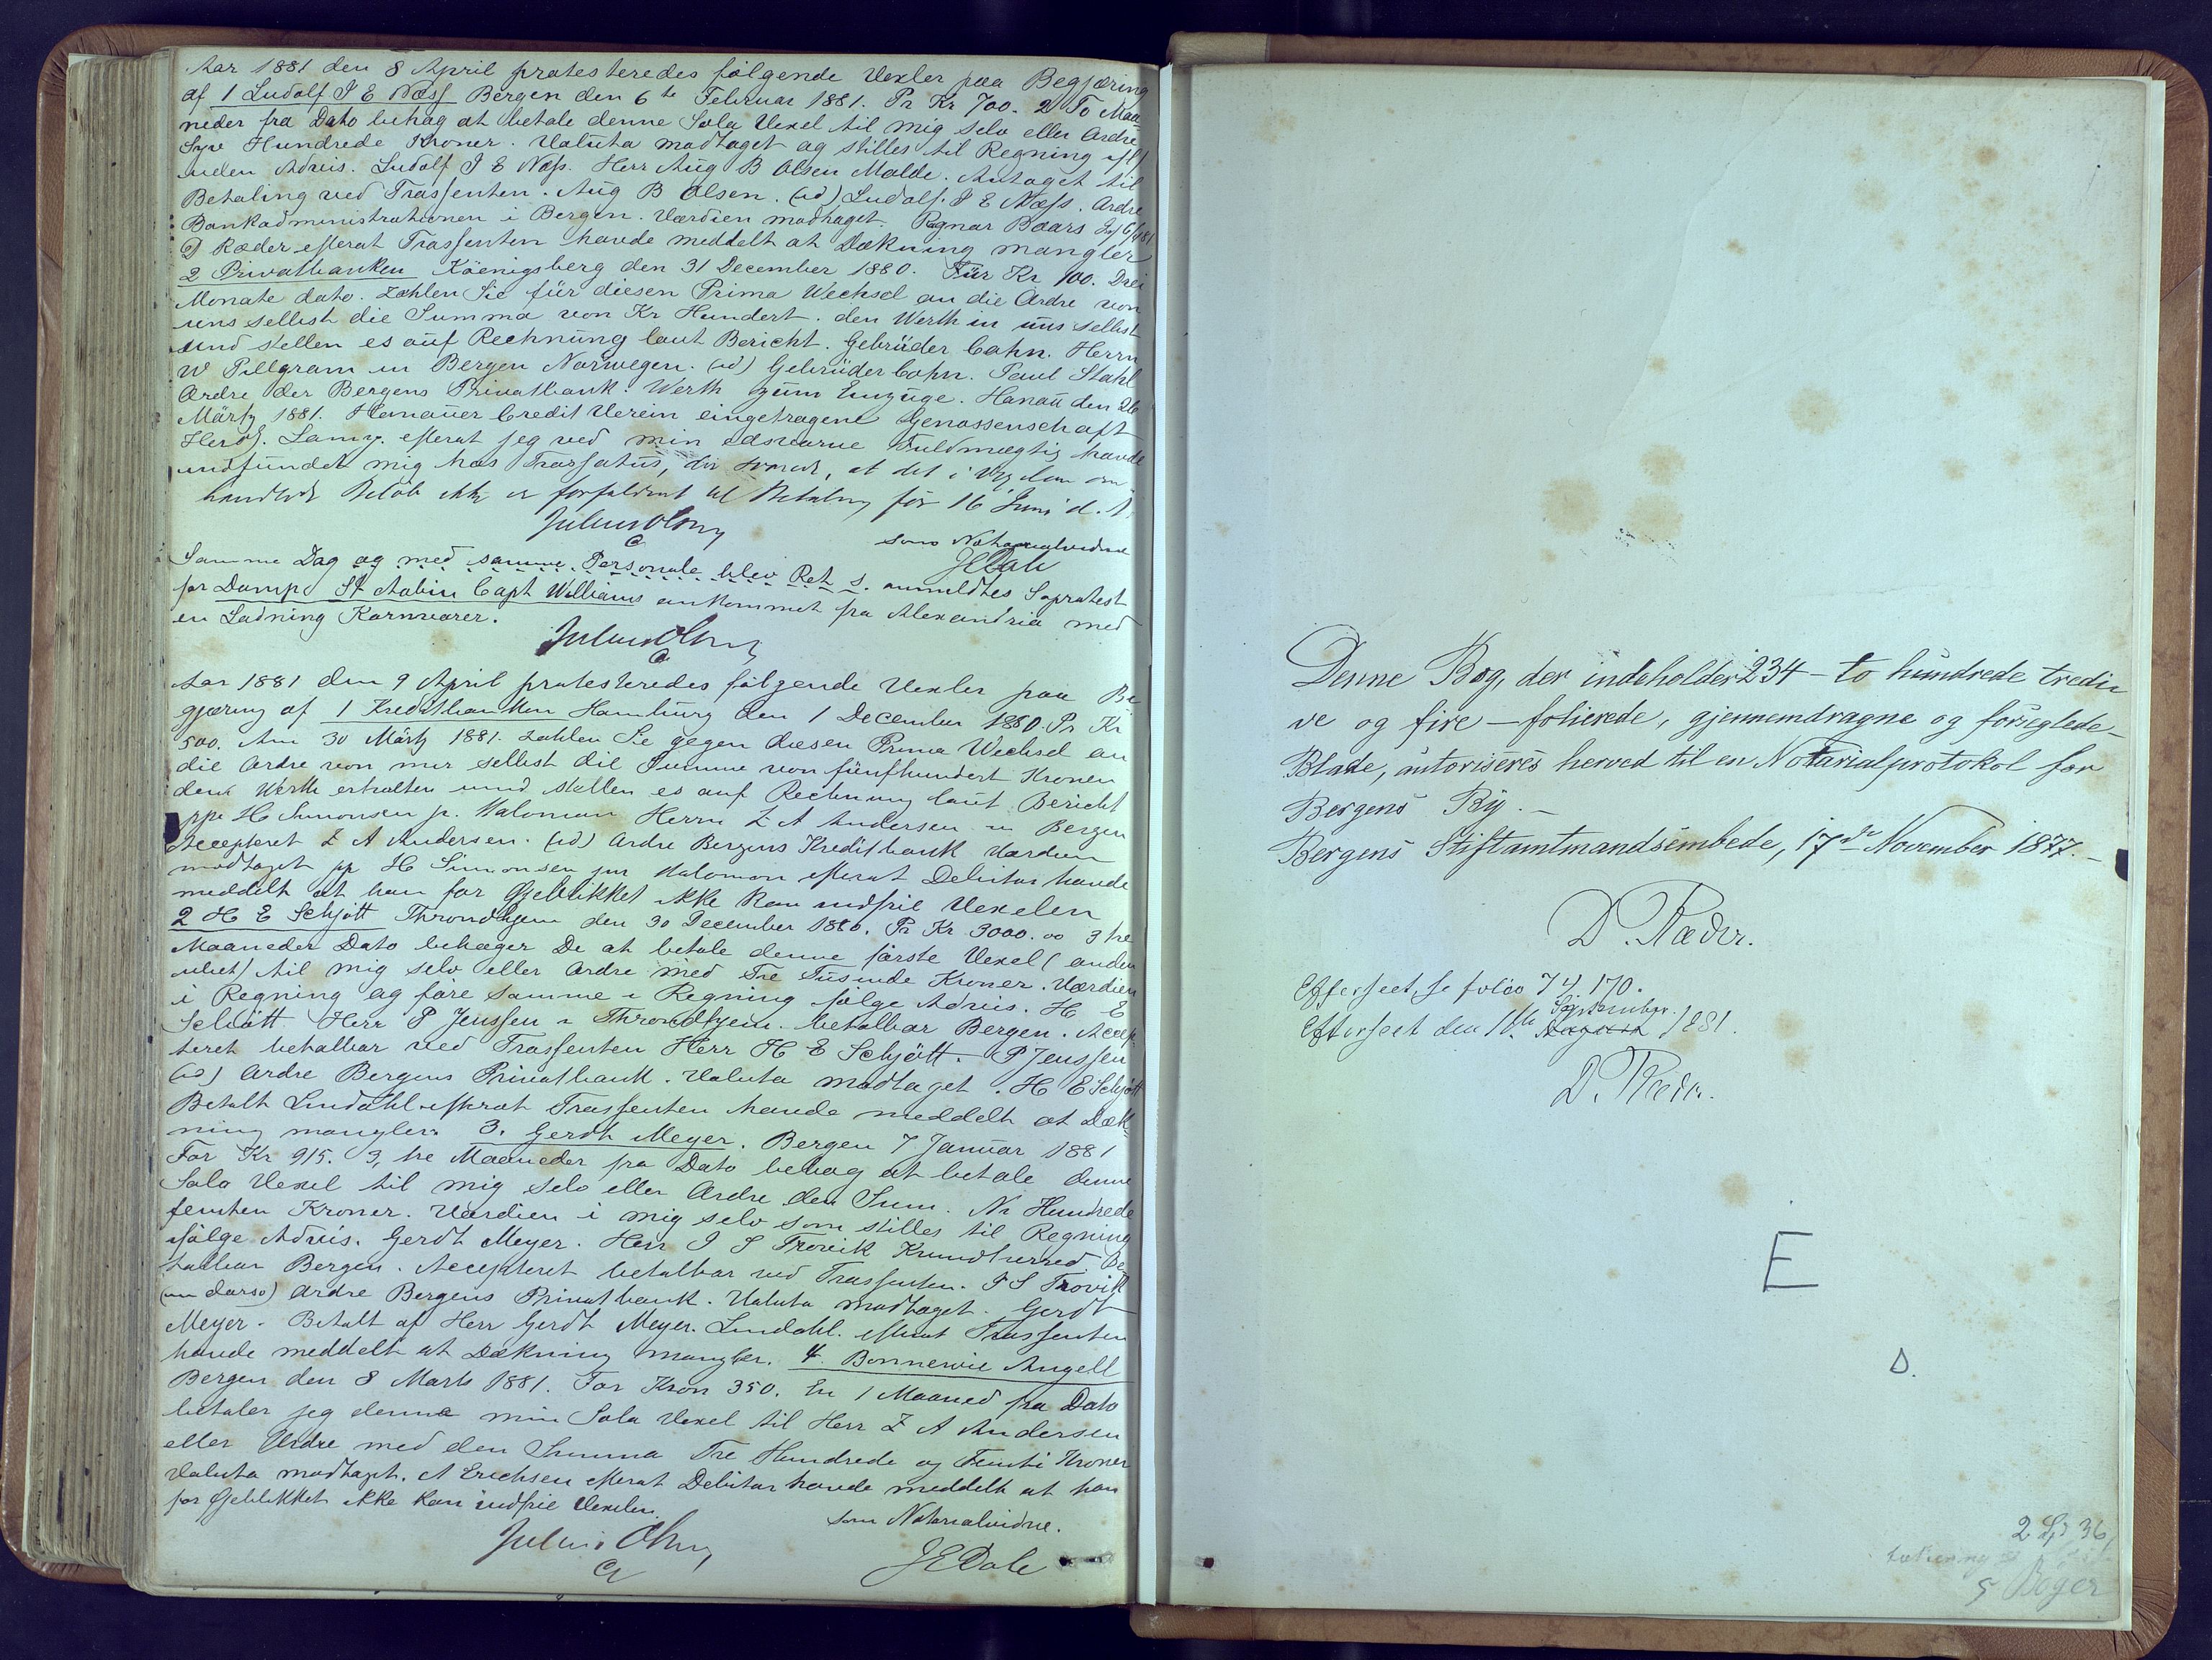 Aar 1881 den 8 April protesteredes følgende Vexler paa Begjæring
af 1 Ludolf J E Næss Bergen den 6te Februar 1881. Pr Kr 700. 2 To Maa
neder fra Dato behag at betale denne Sola Vexel til mig selv eller Ordre
Syv Hundrede Kroner. Valuta modtaget og stilles til Regning
uden Advis. Ludolf J E Næss. Herr Aug B Olsen Molde. Antaget til
Betaling ved Trassenten. Aug B Olsen. (id) Ludolf J E Næss. Ordre
Bankadministrationen i Bergen. Værdien modtaget. Ragnar Baars
Ræder efterat Trassenten havde meddelt at Dækning mangler
2 Privatbanken Köenigsberg den 31 December 1880. Für Kr 100. Drei
Monate dato. Zahlen Sie für diesen Prima Wechsel an die Ordre von
uns selbst die Summa von Kr Hundert. den Werth in uns selbst
und stellen es auf Rechnung laut Bericht. Gebrüder Cahn. Herrn
W Pillgram in Bergen Norwegen. (id) Gebrüder Cohn. Paul Stahl
Ordre der Bergens Privatbank. Werth zum Einzuge. Hanau den 26
Märtz 1881. Hanauer Credit Verein eingetragene Genossenschaft
Lamy. efterat jeg ved min edsvorne Fuldmægtig havde
indfundet mig hos Trassatus, der svarede, at det i Vexlen om-
handlede Beløb ikke er forfaldent til Betaling før 16 Juni d. A.
Julius Olsen
som Notarialvidne
JEDale
Samme Dag og med samme Personale blev Ret s. anmeldtes Søprotest
for Dampsk St Aubin Capt Williams ankommet fra Alexandria med
en Ladning Kornvarer.
Julius Olsen
Aar 1881 den 9 April protesteredes følgende Vexler paa Be
gjæring af 1 Kreditbanken Hamburg den 1 December 1880. Pr Kr
500. Am 30 Märtz 1881. zahlen Sie gegen diesen Prima Wechsel an
die Ordre von mir selbst die Summe von fünfhundert Kronen
den Werth erhalten und stellen es auf Rechnung laut Bericht
ppa H Simonsen jr. Maloman Herrn Z A Andersen in Bergen
Accepteret Z A Andersen. (id) Ordre Bergens Kreditbank Værdien
modtaget pp H Simonsen jun Malomon efterat Debitor havde
meddelt at han for Øjeblikket ikke kan indfrie Vexelen
2 H E Schjøtt Throndhjem den 30 December 1880. Pr Kr 3000.00 3 tre
Maaneder Dato behager De at betale denne første Vexel (anden
ubet) til mig selv eller Ordre med Tre Tusinde Kroner. Værdien
i Regning og føre samme i Regning følge Advis. H E
Schiøtt Herr P Jenssen i Throndhjem. betalbar Bergen. Accep
teret betalbar ved Trassenten Herr H E Schjøtt. P Jenssen
(id) Ordre Bergens Privatbank. Valuta modtaget. H E Schjøtt
Betalt Lindahl efterat Trassenten havde meddelt at Dæk
ning mangler. 3. Gerdt Meyer. Bergen 7 Januar 1881
For Kr 915. 3, tre Maaneder fra Dato behag at betale denne
Sola Vexel til mig selv eller Ordre den Sum. Ni Hundrede
femten Kroner. Værdien i mig selv som stilles til Regning
ifølge Advis. Gerdt Meyer. Herr J S Trovik Be
talbar Bergen. Accepteret betalbar ved Trassenten. J S Trovik
(in dorso) Ordre Bergens Privatbank. Valuta modtaget. Gerdt
Meyer. Betalt af Herr Gerdt Meyer. Lindahl. efterat Trassenten
havde meddelt at Dækning mangler. 4. Bonnevie Angell
Bergen den 8 Marts 1881. For Kron 350. En 1 Maaned fra Dato
betaler jeg denne min Sola Vexel til Herr Z A Andersen
eller Ordre med den Summa Tre Hundrede og Femti Kroner
Valuta modtaget. A Erichsen efterat Debitor havde meddelt at han
for Øjeblikket ikke kan indfrie Vexelen.
som Notarialvidne.
Julius Olsen
JEDale
Denne Bog, der indeholder 234 - to hundrede tredi
ve og fire - folierede, gjennemdragne og forseglede
Blade, autoriseres herved til en Notarialprotokol for
Bergens By. -
Bergens Stiftamtmandsembede, 17de November 1877. -
D. Ræder.
Efterseet, se folio 74, 170.
September
Efterseet den 10de August 1881.
D. Ræder.
E
D.
2 36
5 Bøger